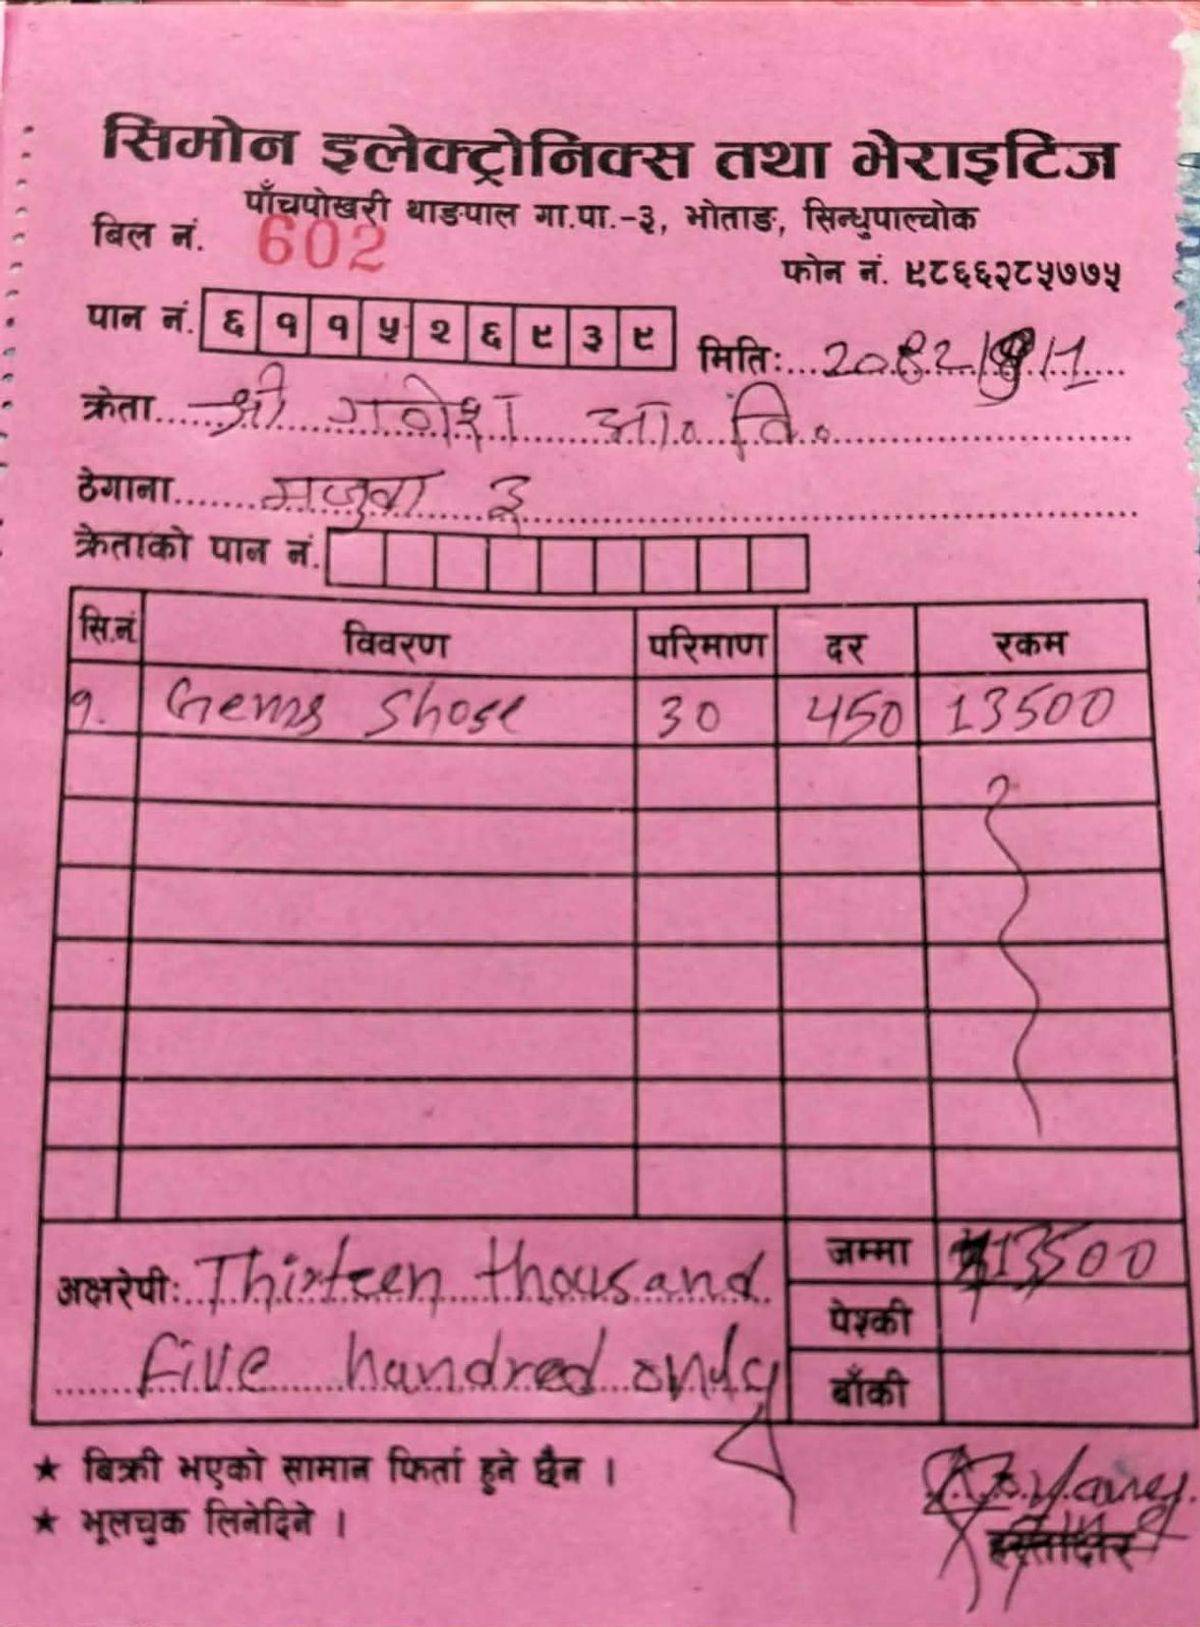 सिमोन इलेक्ट्रोनिक्स तथा भेराइटिज
पाँचपोखरी थाङपाल गा.पा.-३, भोताङ, सिन्धुपाल्चोक
बिल नं. 602
फोन नं. ९८६६२८५७७५
पान नं. ६ १ १ ५ २ ६ ९ ३ ९
मिति: 2082/ /1
क्रेता श्री गणेश आ. वि.
ठेगाना मजुवा ३
क्रेताको पान नं.
सि.नं विवरण परिमाण दर रकम
१. Gems Shose 30 450 13500
जम्मा 13500
अक्षरेपी: Thirteen thousand
five handred only
पेश्की
बाँकी
★ बिक्री भएको सामान फिर्ता हुने छैन ।
★ भूलचुक लिनेदिने ।
हस्ताक्षर